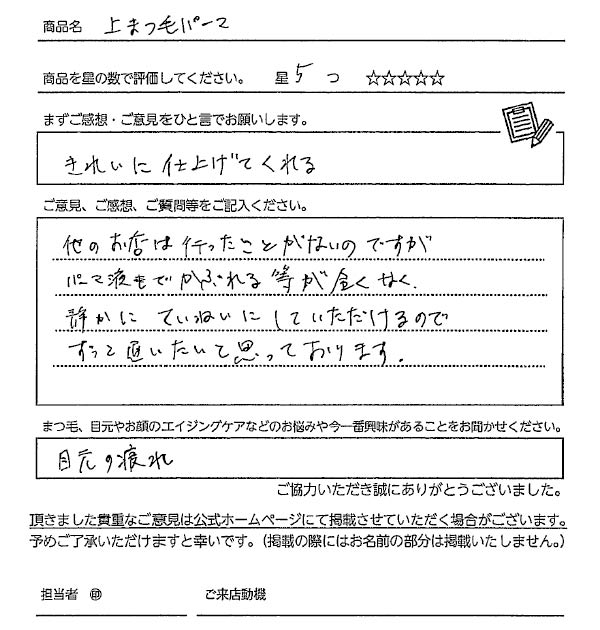 商品名 上まつ毛パーマ
商品を星の数で評価してください。 星 5 つ ☆☆☆☆☆
まずご感想・ご意見をひと言でお願いします。
きれいに仕上げてくれる
ご意見、ご感想、ご質問等をご記入ください。
他のお店は行ったことがないのですが
パーマ液もでかぶれる等が全くなく.
静かにていねいにしていただけるので
ずっと通いたいと思っております.
まつ毛、目元やお顔のエイジングケアなどのお悩みや今一番興味があることをお聞かせください。
目元の疲れ
ご協力いただき誠にありがとうございました。
頂きました貴重なご意見は公式ホームページにて掲載させていただく場合がございます。
予めご了承いただけますと幸いです。（掲載の際にはお名前の部分は掲載いたしません。）
担当者 ㊞ ご来店動機